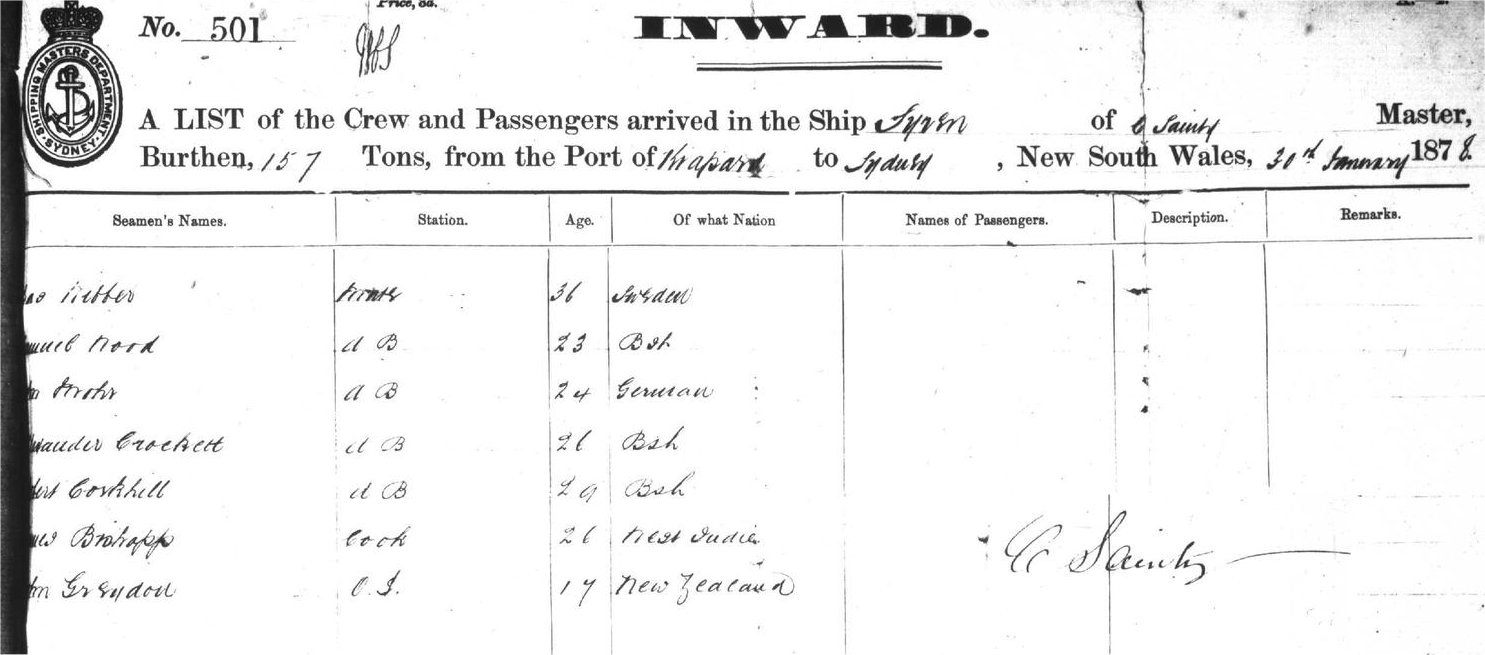 Price, 8d.
No. 501
INWARD.
SHIPPING MASTERS DEPARTMENT. SYDNEY.
A LIST of the Crew and Passengers arrived in the Ship Syren of C Sainty Master,
Burthen, 157 Tons, from the Port of to Sydney, New South Wales, 30th January 1878.
Seamen's Names. Station. Age. Of what Nation Names of Passengers. Description. Remarks.
36 Sweden
Wood A B 23 Bsh
A B 24 German
Crockett A B 26 Bsh
Corkhill A B 29 Bsh
Cook 26 West Indies
Greydon O.S. 17 New Zealand
C Sainty